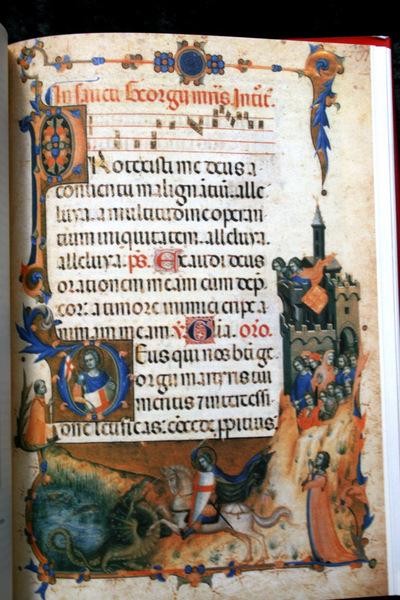 In sancti Georgii
Protexisti me deus a
conuentu malignātiū. alle
luya. a multitudine operan
tium iniquitatem. alleluya.
alleluya. ps. Exaudi deus
orationem meam cum dep̄
cor: a timore inimici eripe a
nimam meam. v̄ Gl̄ia. oro.
Deus qui nos bt̄i ge
orgii martyris tui
meritis ⁊ intercessi
one letificas: cōcede ꝓpitius